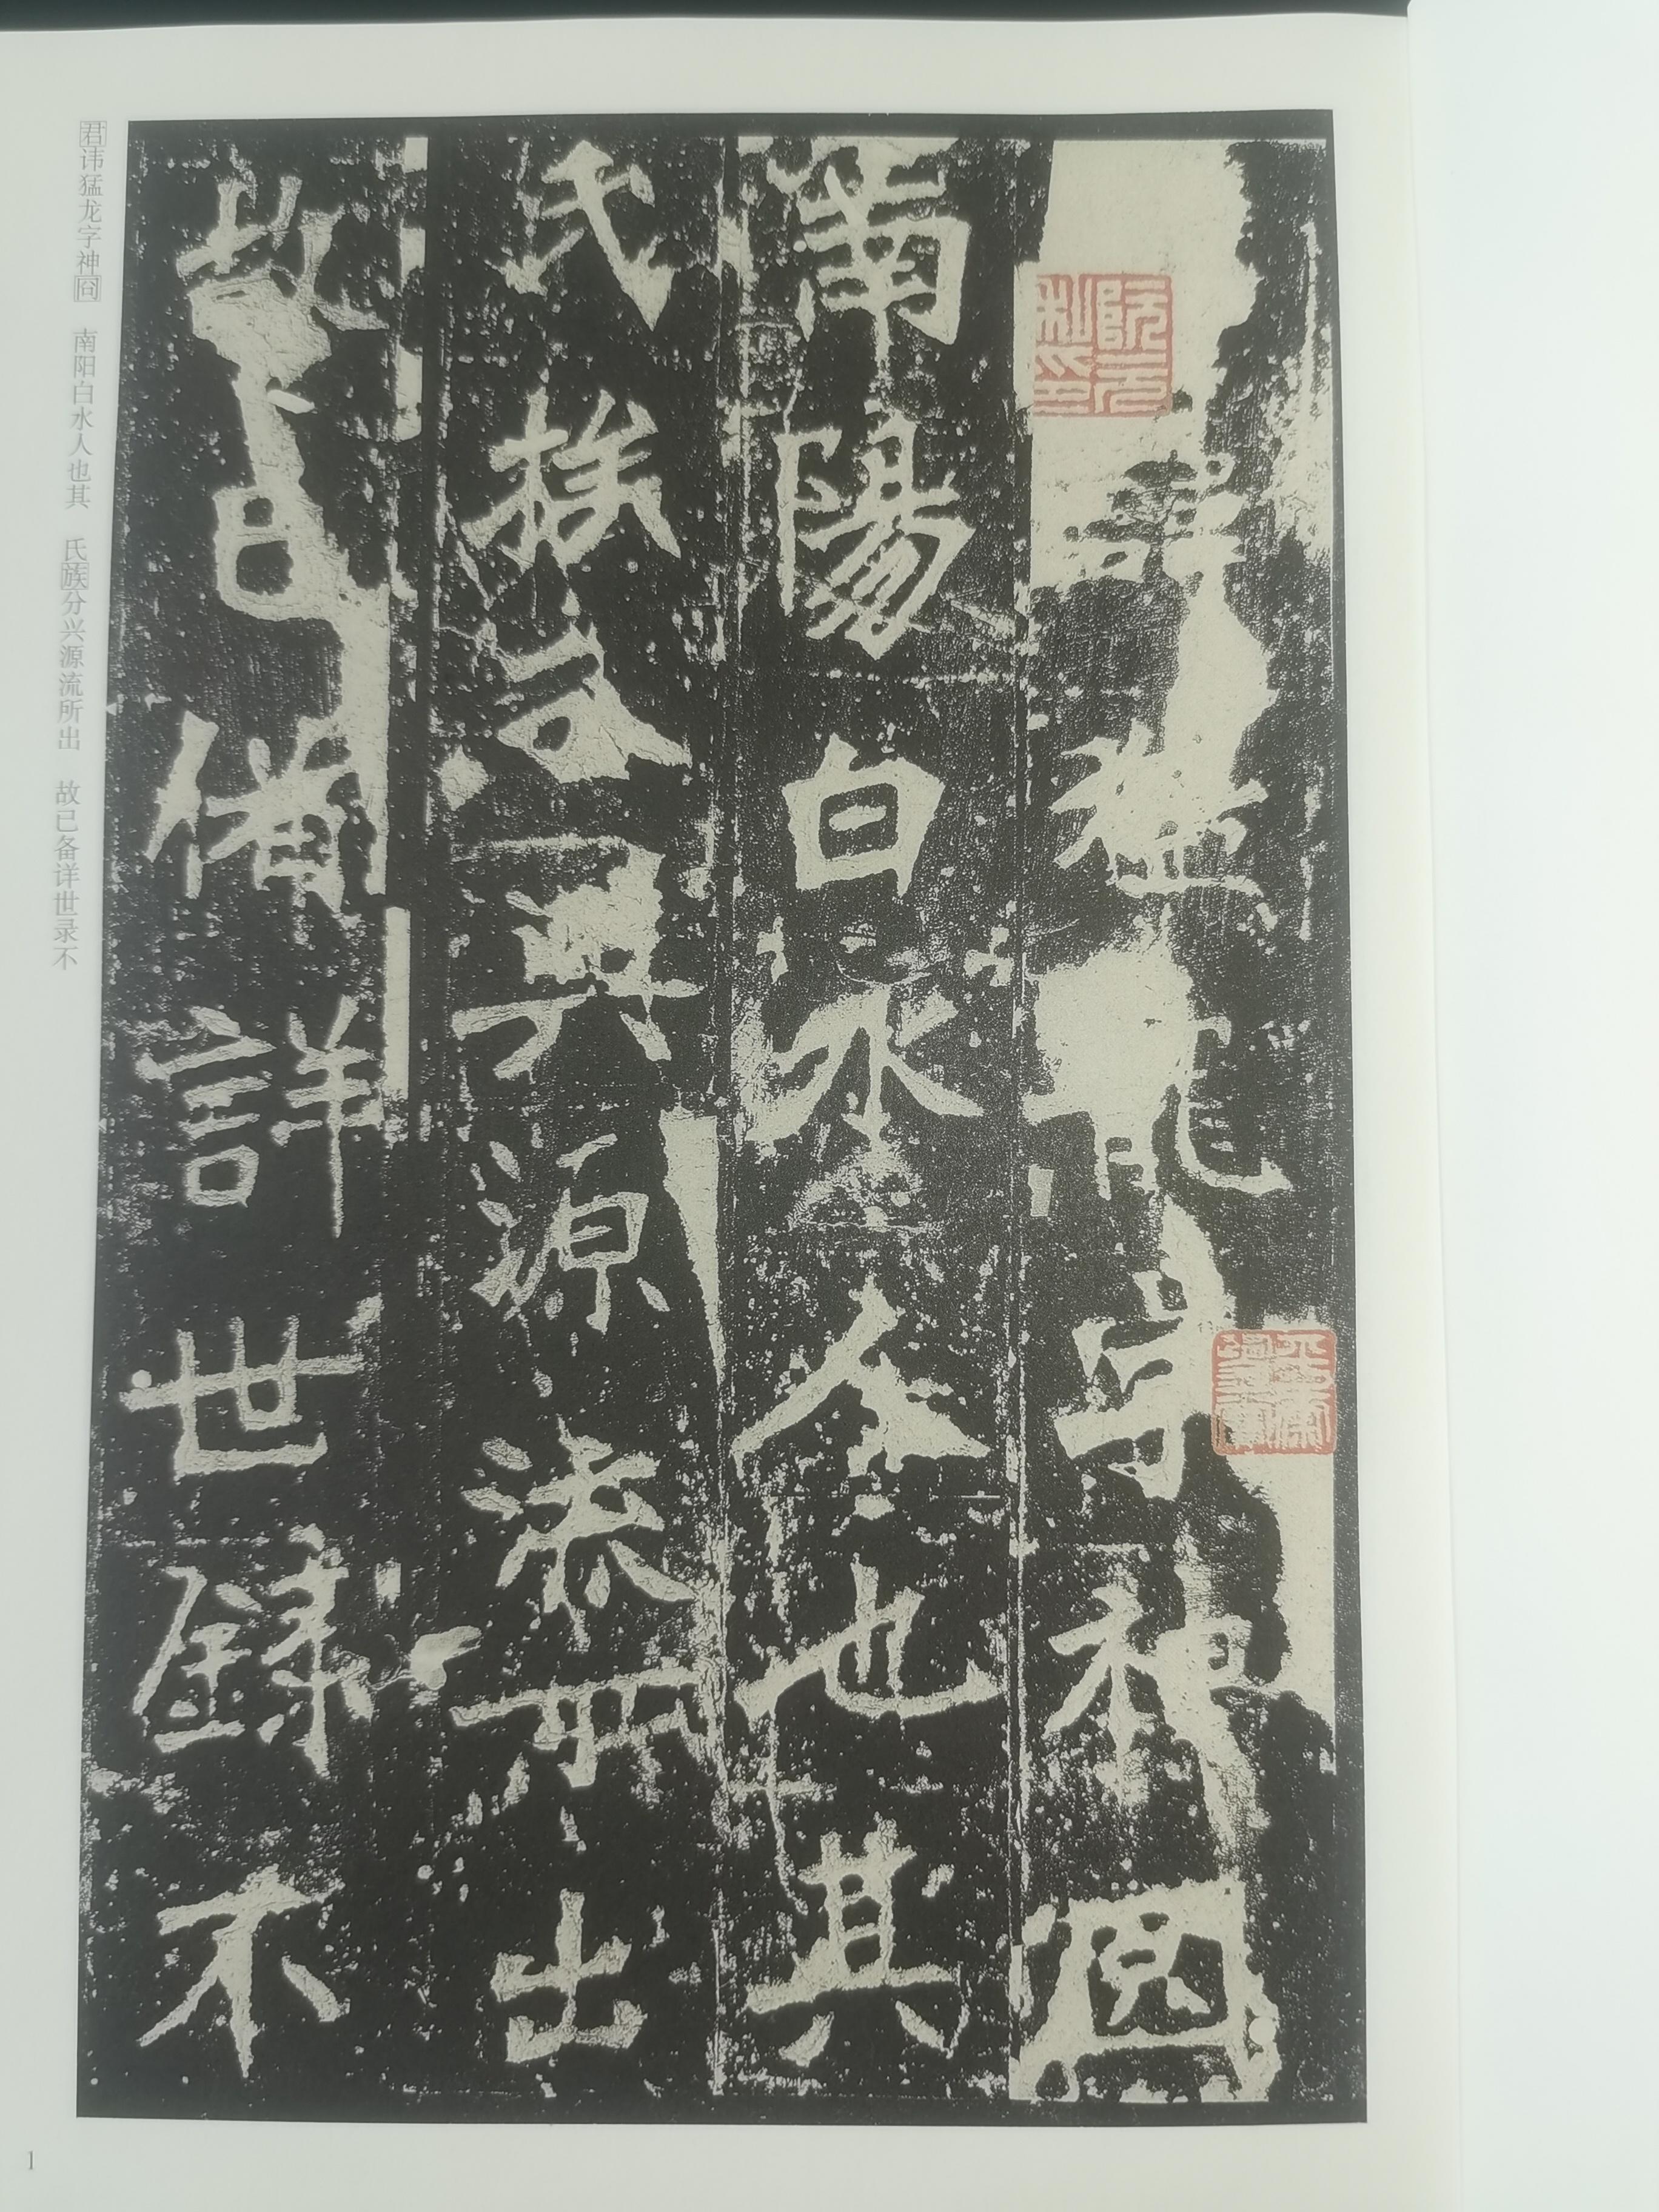 諱猛龍字神㘥
南陽白水人也其
氏族分興源流所出
故已備詳世錄不
阮元私印
君讳猛龙字神㘥 南阳白水人也其 氏族分兴源流所出 故已备详世录不
1